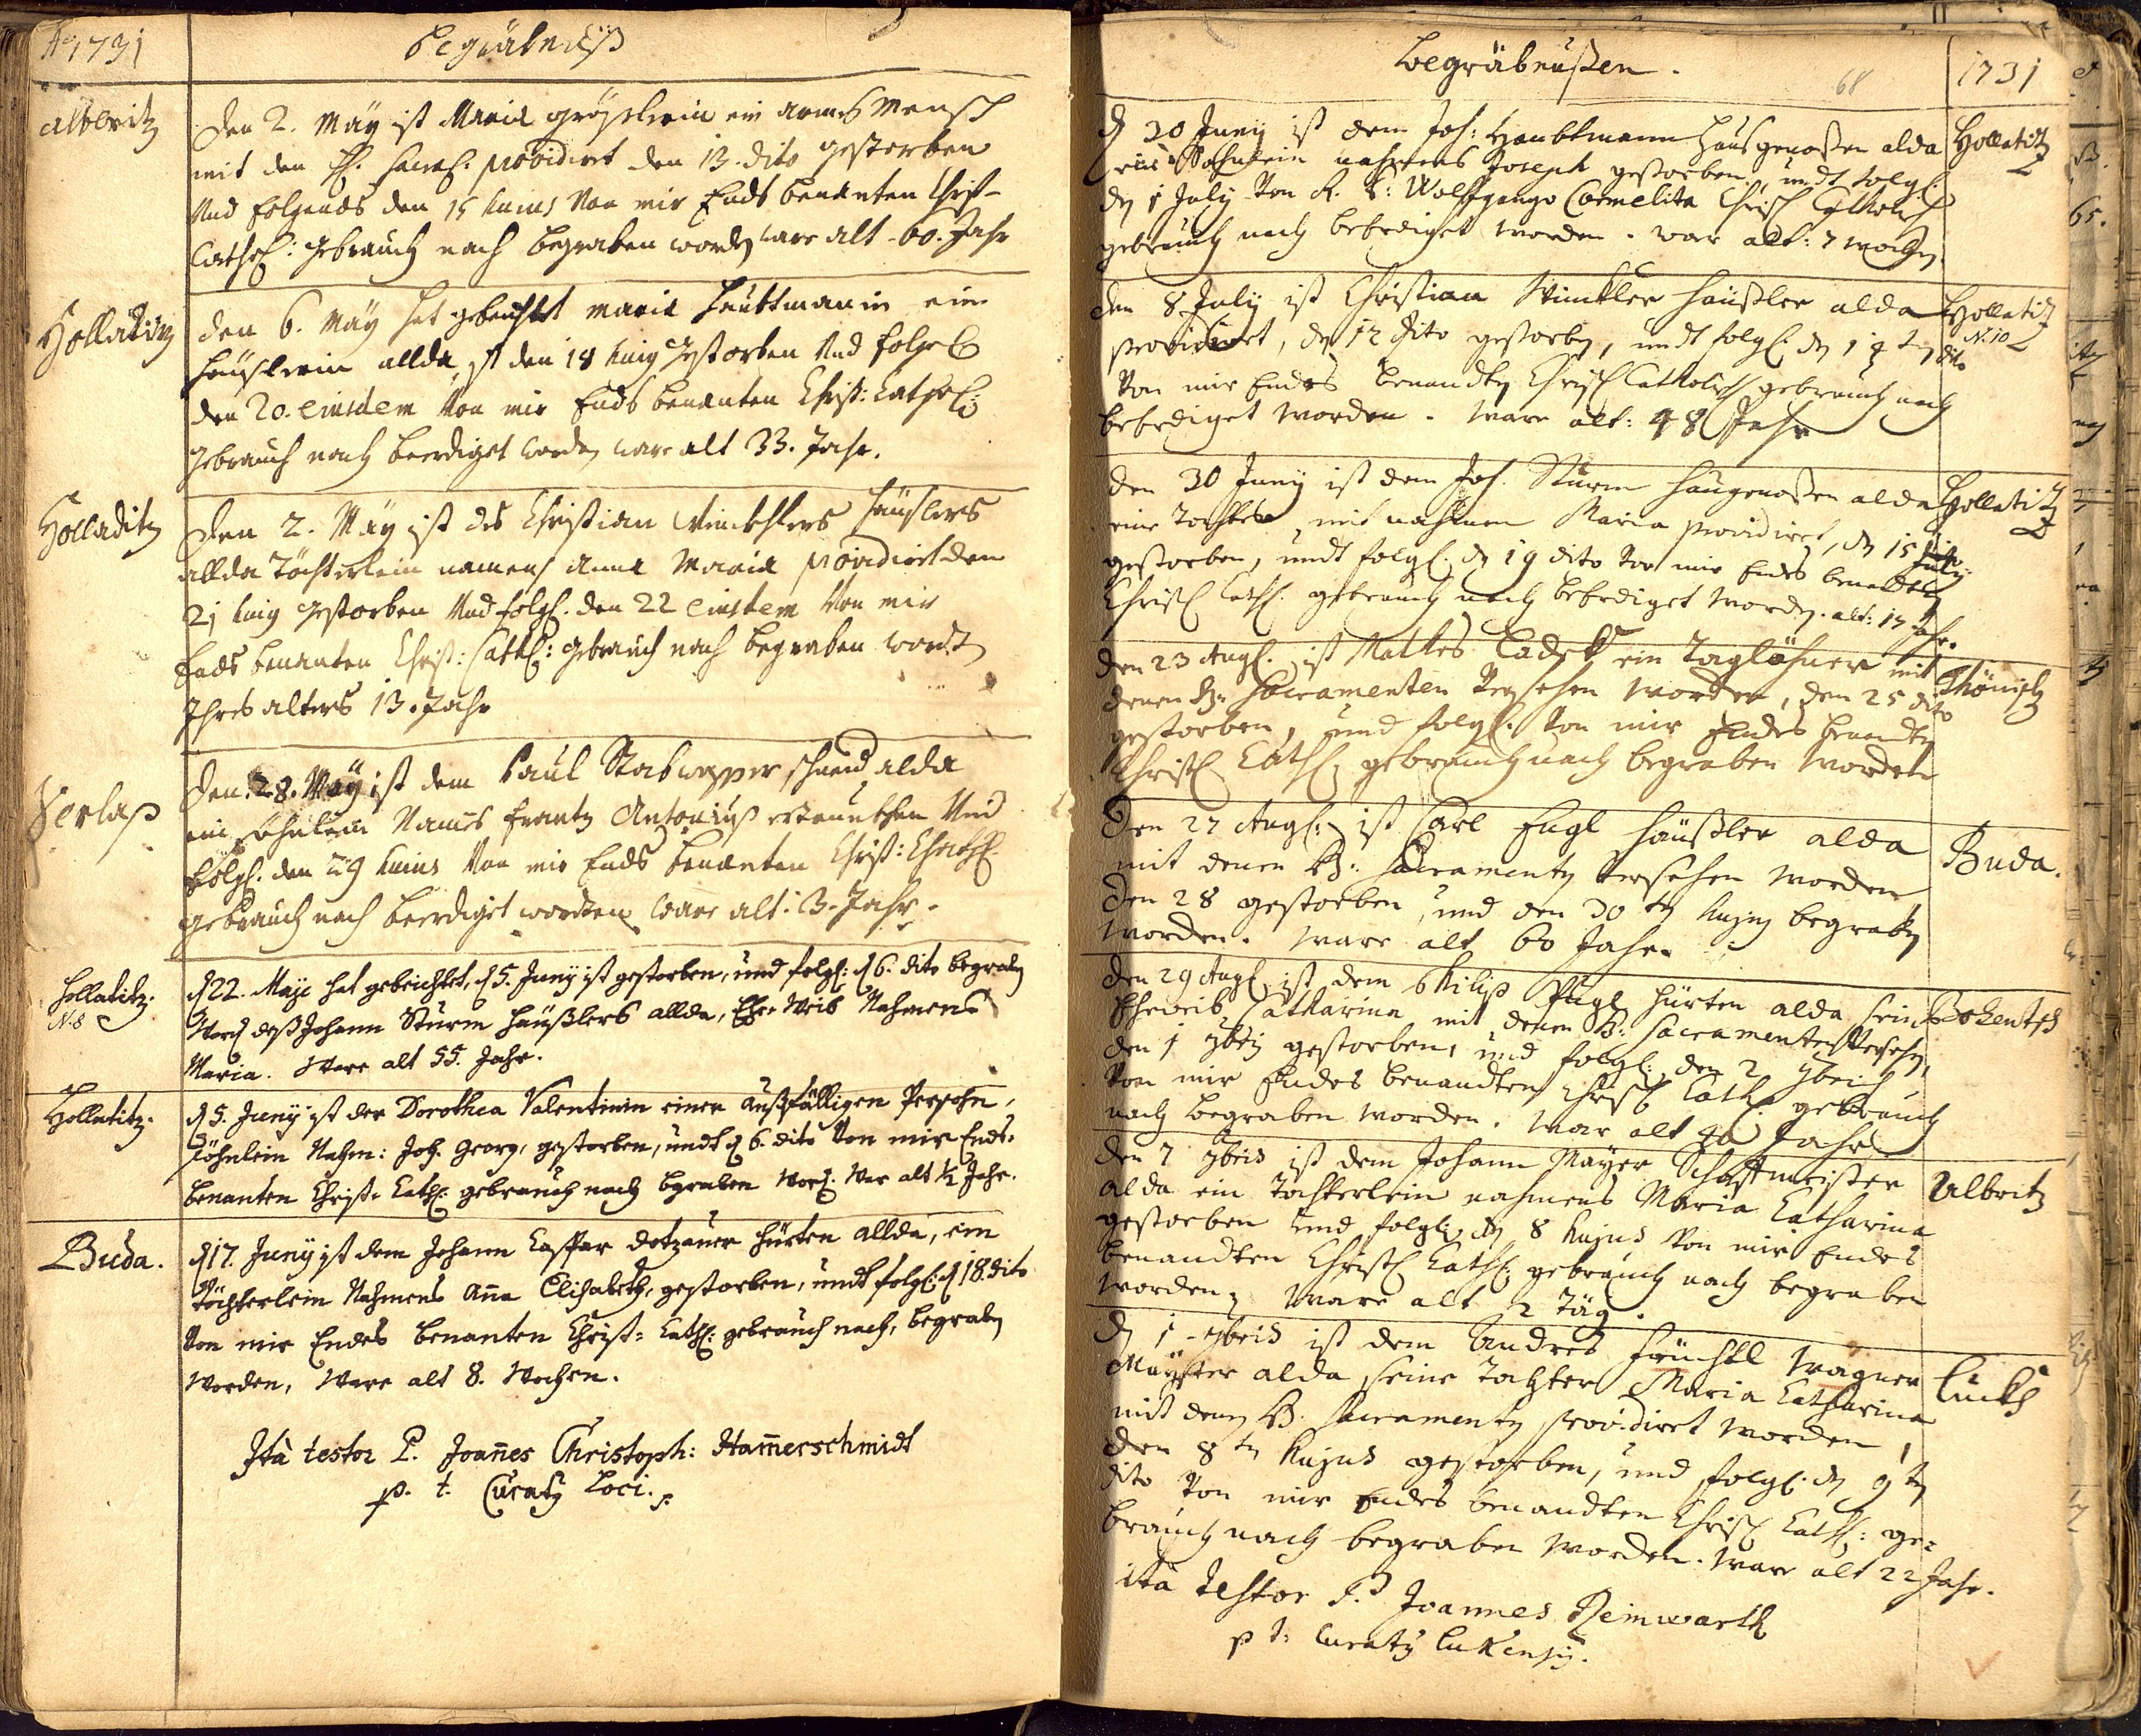 Aō 1731
Begräbnuß
Albritz
Den 2. Maÿ ist Maria ein armes Mensch
mit den H. Sacra: providirt den 13. dito gestorben
Und folgends den 15 huius Von mir Ends benanten Christ-
Cathol: gebrauch nach begraben worden ware alt 60. Jahr
Holladitz
Den 6. Maÿ hat gebeichtet Maria Heubtmanin ein
Häuslerin allda, ist den 18 huius gestorben Und folgl:
den 20. eiusdem Von mir Ends benanten Christ: Cathol:
gebrauch nach beerdiget worden ware alt 33. Jahr.
Holladitz
Den 2. Maÿ ist des Christian Winckhlers Häuslers
allda Töchterlein namens Anna Maria providirt den
21 huius gestorben Und folgl. den 22 eiusdem Von mir
Ends benanten Christ: Cathl: gebrauch nach begraben worden
Ihres alters 13. Jahr
Verlaß
Den 28. Maÿ ist dem Paul schneid alda
ein Söhnlein Names Frantz Antonius ertruncken Und
folgl. den 29 huius Von mir Ends benanten Christ: Cathl.
gebrauch nach beerdiget worden ware alt. 3. Jahr.
Hollatitz.
N. 8
d 22. Maji hat gebeichtet, d 5. Junÿ ist gestorben, und folgl: d 6. dito begraben
word deß Johann Sturm Häußlers allda, Ehe-Weib Nahmens
Maria. Ware alt 55. Jahr.
Hollatitz.
d 5. Junÿ ist der Dorothea Valentinin einer Außfälligen Persohn,
Söhnlein Nahm: Joh. Georg, gestorben, undt d 6. dito Von mir Ends-
benanten Christ- Cath: gebrauch nach begraben word. War alt ½ Jahr.
Buda.
d 17. Junÿ ist dem Johann Caspar Dotzauer Hürten allda, ein
Töchterlein Nahmens Aña Elisabeth, gestorben, undt folgl: d 18. dito
Von mir Endes benanten Christ- Cath: gebrauch nach, begraben
worden, Ware alt 8. Wochen.
Ità testor P. Joañes Christoph: Ham̄erschmidt
p. t. Curatus Loci.
Begräbnußen.
68
1731
d 30 Junÿ ist dem Joh: Haubtmann Haußgenoßen alda
Hollatitz
ein Söhnlein nahmens Joseph gestorben, undt folgl:
den 1 July Von R. P: Wolffgango Carmelita Christ Catholisch
gebrauch nach beerdiget worden. war alt: 7 wochen.
den 8 July ist Christian Winckler Häußler alda
Hollatitz
N. 10
providiret, den 12 dito gestorben, undt folgl: den 14 ten dito
Von mir Endes benandten Christ Catholisch gebrauch nach
beerdiget worden. ware alt: 48 Jahr
den 30 Junÿ ist dem Joh. Sturm Haußgenoßen alda
Hollatitz
eine Tochter, mit nahmen Maria providiret, den 15 July
gestorben, undt folgl: den 19 dito Von mir Endes benandten
Christ Cath: gebrauch nach beerdiget worden. alt: 17 Jahr.
den 23 Augl. ist Mathes ein Taglöhner mit
denen H. Sacramenten Versehen worden, den 25 dito
gestorben, und folgl: Von mir Endes benandten
Christ Cath: gebrauch nach begraben worden
Den 27 Augl: ist Carl Engl Häußler alda
Buda.
mit denen H: Sacramenten versehen worden
den 28 gestorben, und den 30 ten hujus begraben
worden. Ware alt 60 Jahr.
den 29 Augl ist dem Philip Hürten alda sein
Eheweib Catharina mit denen H: Sacramenten Versehen,
den 1 7bris gestorben, und folgl: den 2 7bris
Von mir Endes benandten Christ Cath: gebrauch
nach begraben worden. War alt 40 Jahr
den 7 7bris ist dem Johann Mayer Schaffmeister
Albritz
alda ein Töchterlein nahmens Maria Catharina
gestorben und folgl: den 8 hujus Von mir Endes
benandten Christ Cath: gebrauch nach begraben
worden, Ware alt 2 Täg.
d 1 7bris ist dem Andres Wagner
Luckh
Maÿster alda seine Tochter Maria Catharina
mit denen H. Sacramenten providiret worden,
den 8 ten hujus gestorben, und folgl: den 9 ten
dito Von mir Endes benandten Christ Cath: ge-
brauch nach begraben worden. Ware alt 22 Jahr.
ita testor P. Joannes Reinwarth
p t: Curatus Lukensis.